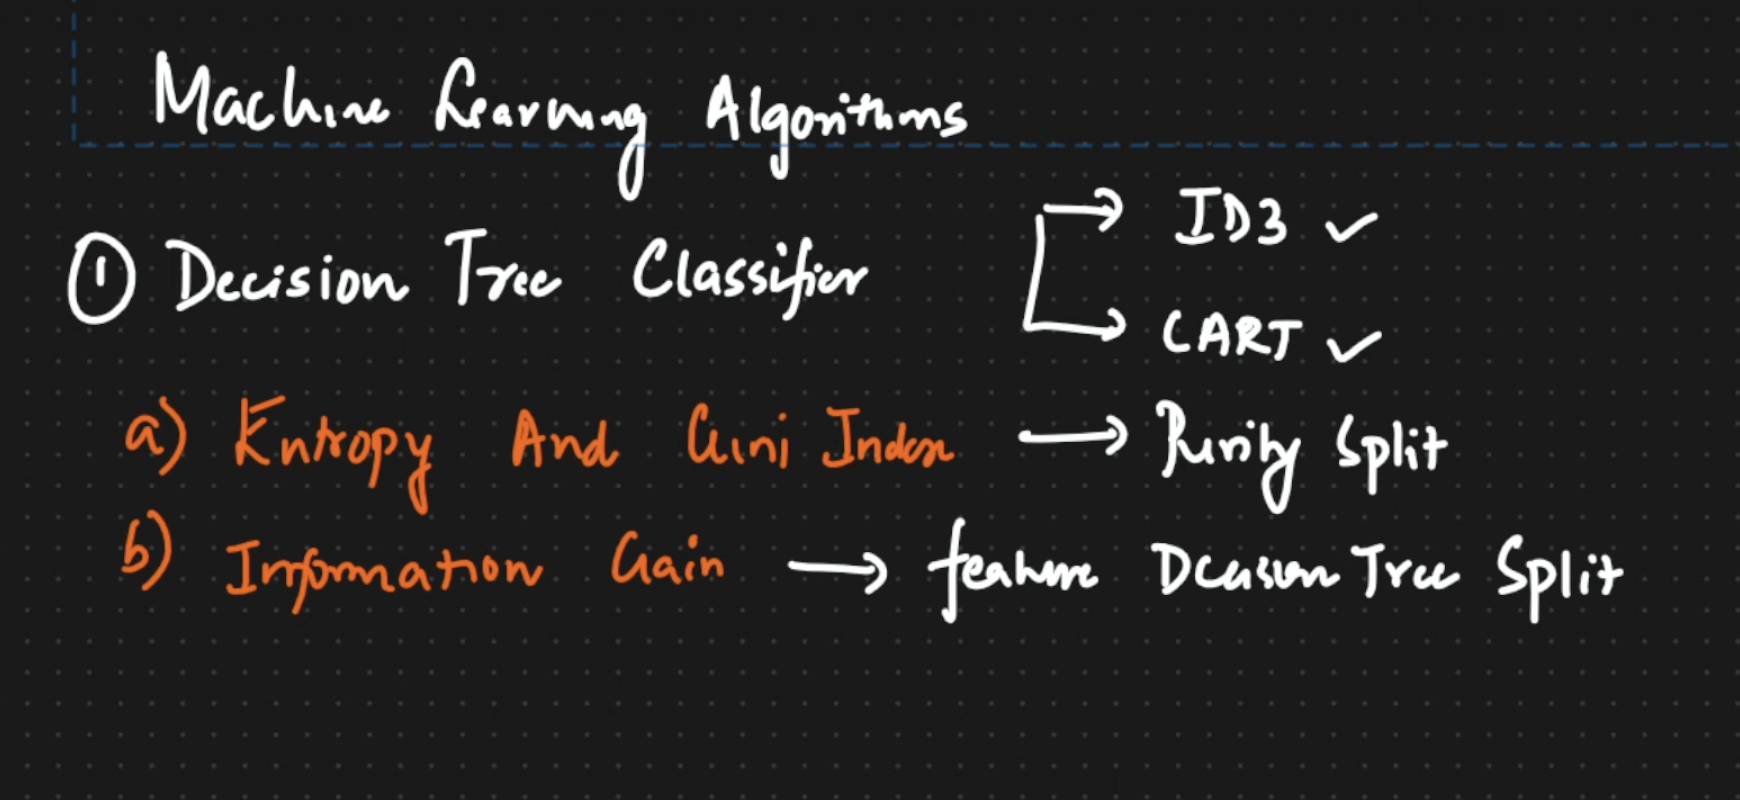 Machine Learning Algorithms
→ ID3 ✓
① Decision Tree Classifier
→ CART ✓
a) Entropy And Gini Index → Purity Split
b) Information Gain → feature Decision Tree Split